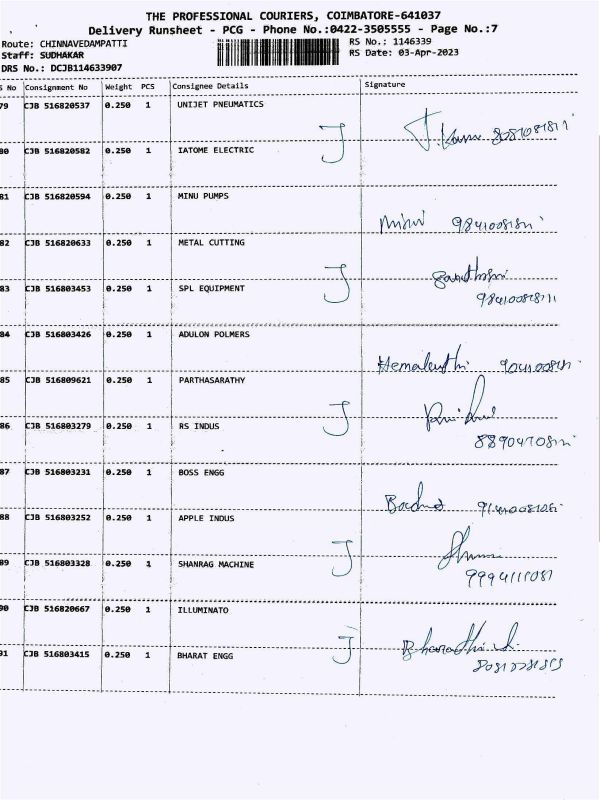 THE PROFESSIONAL COURIERS, COIMBATORE-641037
Delivery Runsheet - PCG - Phone No.:0422-3505555 - Page No.:7
Route: CHINNAVEDAMPATTI
RS No.: 1146339
Staff: SUDHAKAR
RS Date: 03-Apr-2023
DRS No.: DCJB114633907
S No Consignment No Weight PCS Consignee Details Signature
79 CJB 516820537 0.250 1 UNIJET PNEUMATICS
J
80 CJB 516820582 0.250 1 IATOME ELECTRIC
81 CJB 516820594 0.250 1 MINU PUMPS
82 CJB 516820633 0.250 1 METAL CUTTING
J
83 CJB 516803453 0.250 1 SPL EQUIPMENT
84 CJB 516803426 0.250 1 ADULON POLMERS
85 CJB 516809621 0.250 1 PARTHASARATHY
J
86 CJB 516803279 0.250 1 RS INDUS
87 CJB 516803231 0.250 1 BOSS ENGG
88 CJB 516803252 0.250 1 APPLE INDUS
J
89 CJB 516803328 0.250 1 SHANRAG MACHINE
90 CJB 516820667 0.250 1 ILLUMINATO
J
91 CJB 516803415 0.250 1 BHARAT ENGG